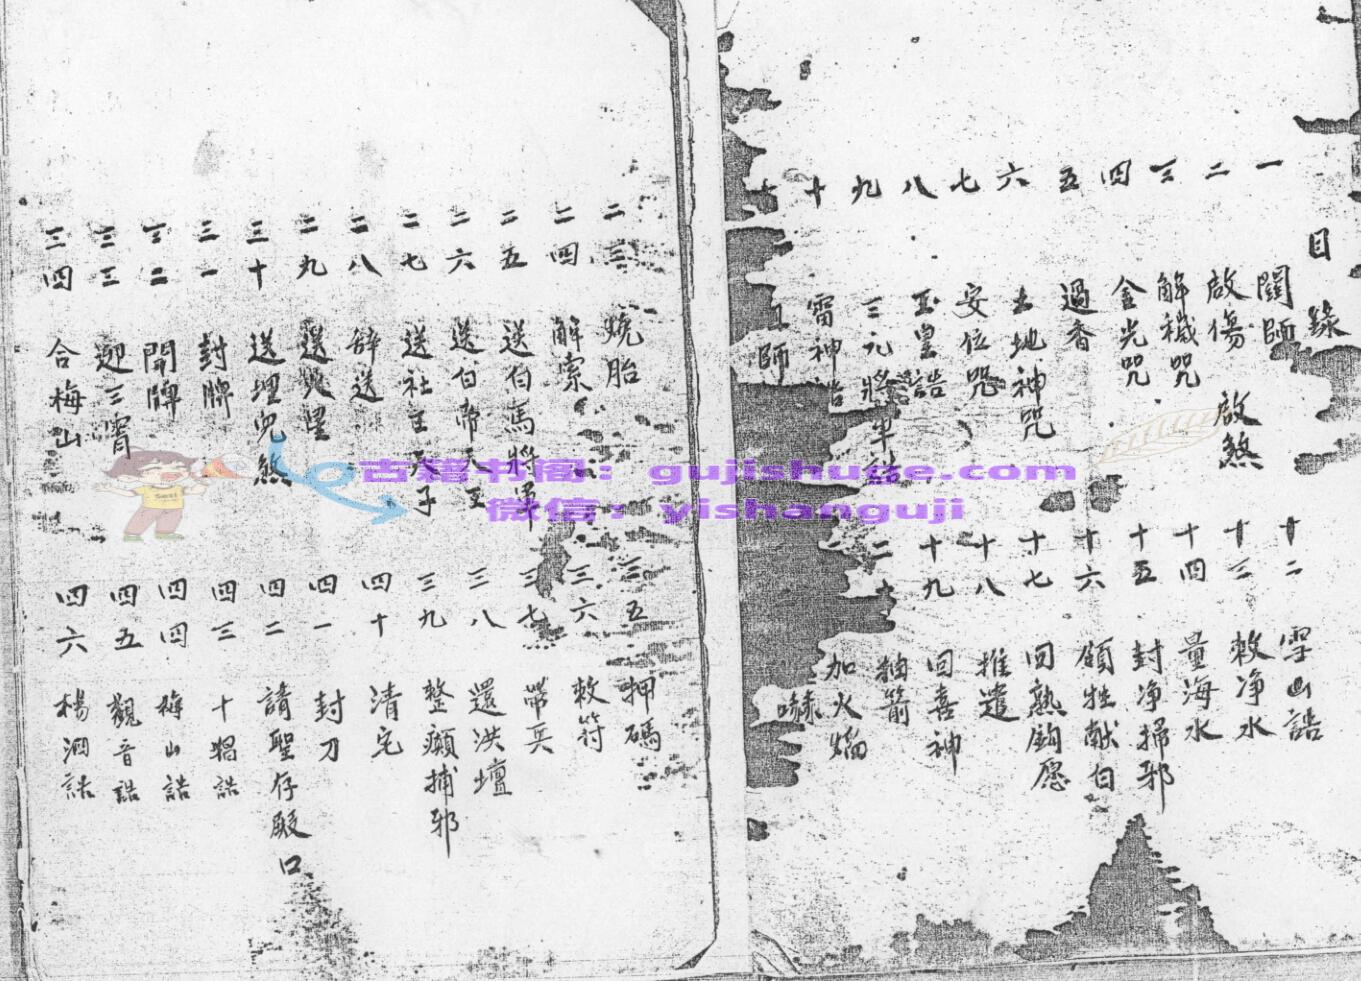 目錄
一 關師
二 啟傷 啟煞
三 解穢咒
四 金光咒
五 過香
六 土地神咒
七 安位咒
八 玉皇誥
九 三元將軍誥
十 雷神誥
十 師
十二 雪山誥
十三 敕净水
十四 量海水
十五 封净掃邪
十六 領牲献白
十七 回熟鈎愿
十八 推遣
十九 回喜神
二十 抽箭
加火熖
二三 燒胎
二四 解索
二五 送白馬將軍
二六 送白帝天王
二七 送社王天子
二八 辞送
二九 送
三十 送埋兒煞
三一 封牌
三二 開牌
三三 迎三霄
三四 合梅山
三五 押碼
三六 敕符
三七 帶兵
三八 還洪壇
三九 整癲捕邪
四十 清宅
四一 封刀
四二 請聖存殿口
四三 十猖誥
四四 梅山誥
四五 觀音誥
四六 楊泗誥
古籍书阁：gujishuge.com
微信：yishanguji